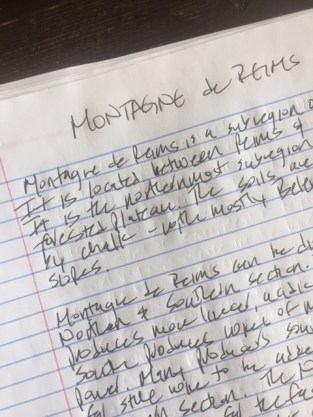 MONTAGNE de REIMS
Montagne de Reims is a subregion
It is located between Reims &
It is the northernmost subregion
forested plateau. The soils are
by chalk - with mostly
slopes.
Montagne de Reims can be
Northern & Southern section.
produces more linear, acidic
South produces wines of
Power. Many producers
style wine to be
section. The